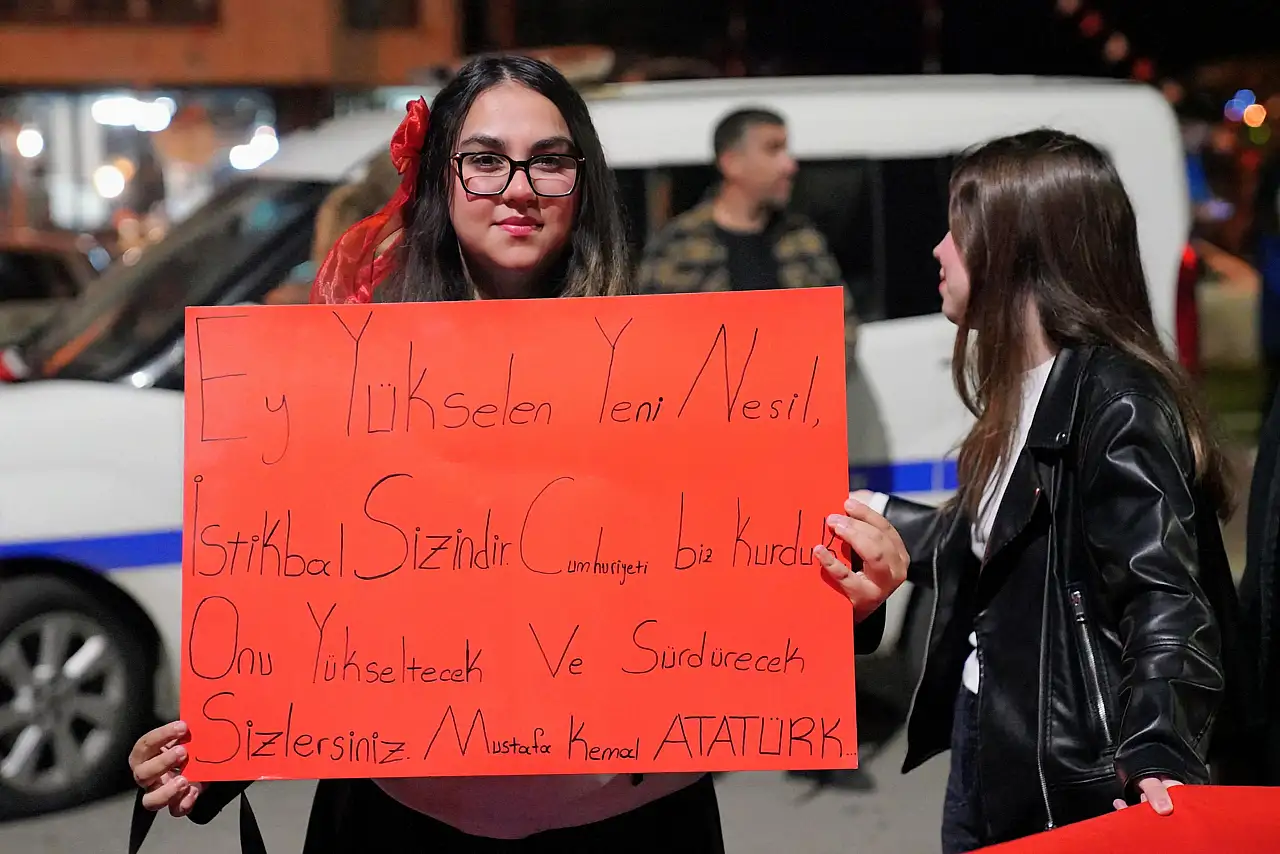 Ey Yükselen Yeni Nesil,
İstikbal Sizindir. Cumhuriyeti biz kurdu
Onu Yükseltecek Ve Sürdürecek
Sizlersiniz. Mustafa Kemal ATATÜRK...